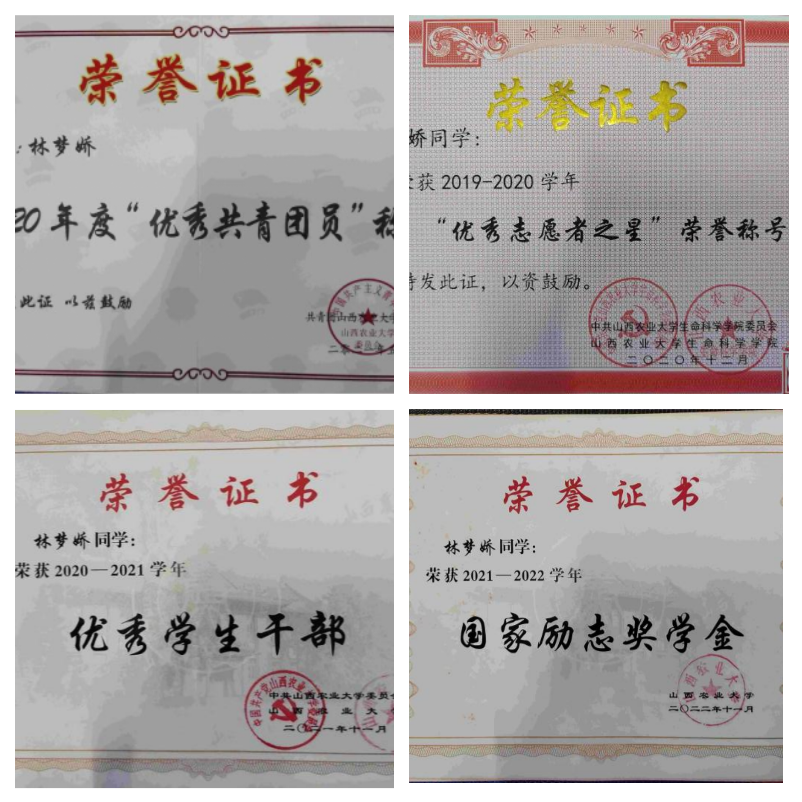 荣誉证书
：林梦娇
20年度“优秀共青团员”称
此证 以兹鼓励
共青团山西农业大学
委员会
荣誉证书
娇同学：
获 2019-2020 学年
“优秀志愿者之星”荣誉称号
特发此证，以资鼓励。
中共山西农业大学生命科学学院委员会
山西农业大学生命科学学院
二〇二〇年十二月
荣誉证书
林梦娇同学：
荣获 2020—2021 学年
优秀学生干部
中共山西农业大学委员会
山西农业大
二〇二一年十一月
荣誉证书
林梦娇同学：
荣获 2021—2022 学年
国家励志奖学金
山西农业大学
二〇二二年十一月